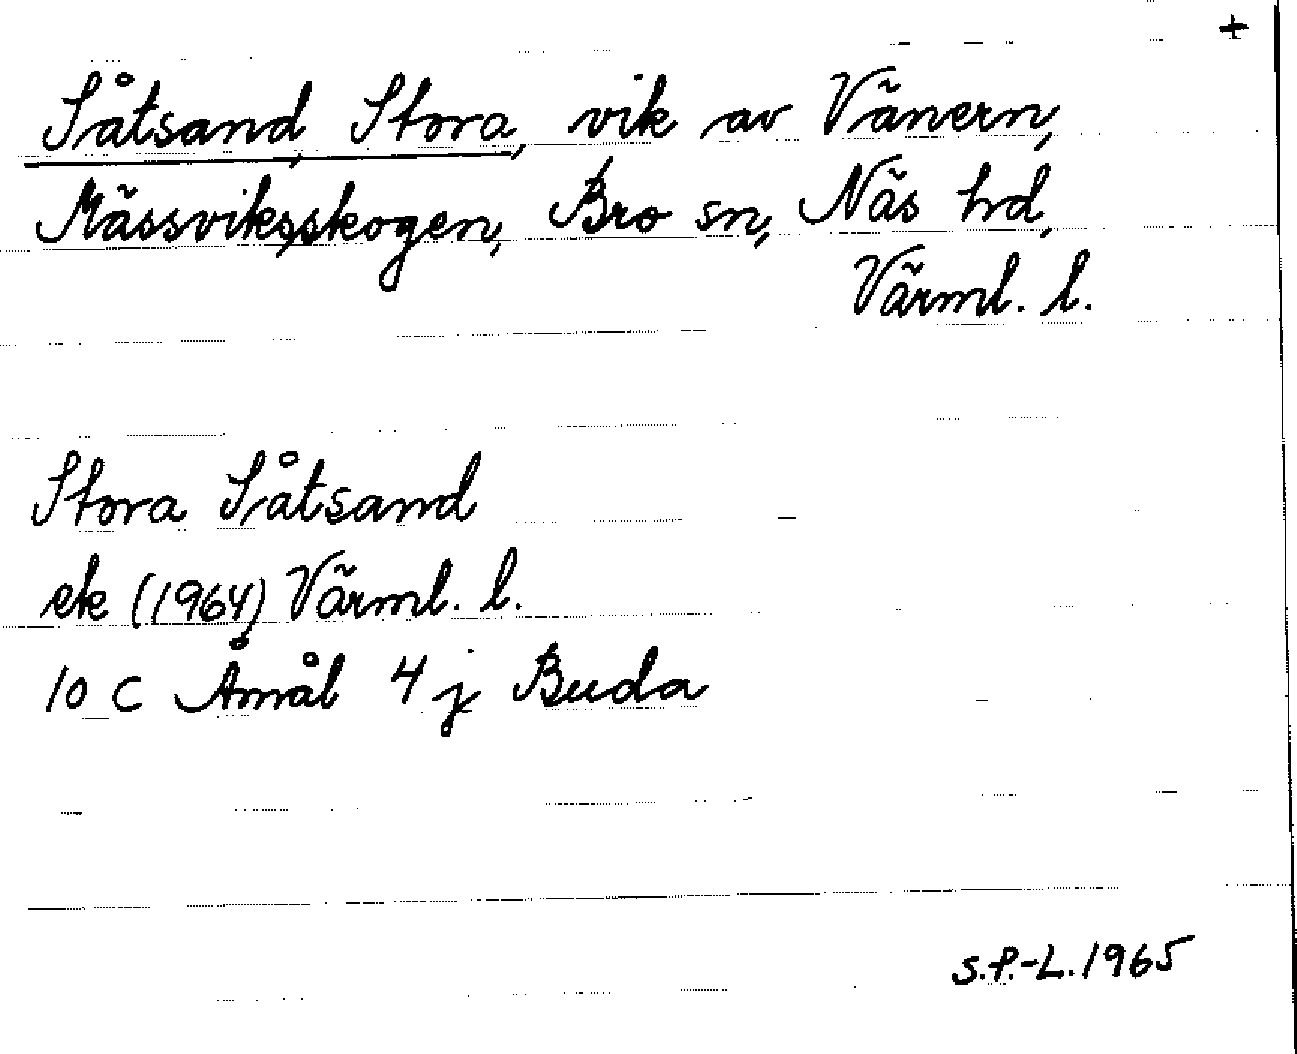 +
Såtsand, Stora, vik av Vänern,
Mässviksskogen, Bro sn, Näs hd,
Värml. l.
Stora Såtsand
ek (1964) Värml. l.
10 C Åmål 4 j Buda
S.P.-L. 1965